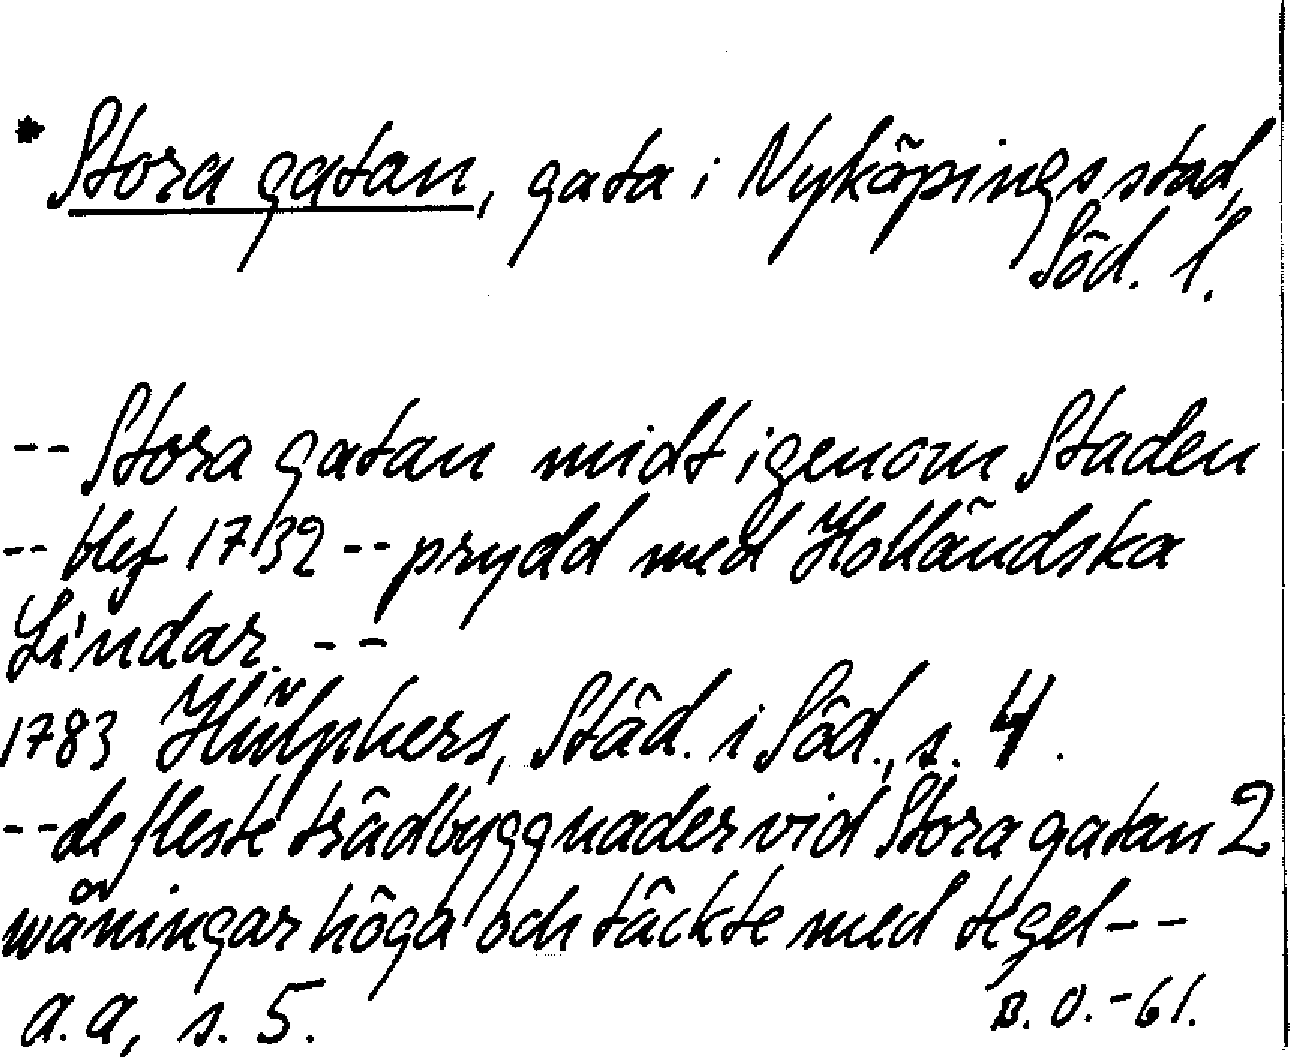 * Stora gatan, gata i Nyköpings stad,
Söd. l.
-- Stora gatan midt igenom Staden
-- blef 1732 -- prydd med Holländska
Lindar. --
1783 Hülphers, Städ. i Söd., s. 4.
-- de fleste trädbyggnader vid Stora gatan 2
wåningar höga och täckte med tegel --
a. a, s. 5.
B. O. -61.